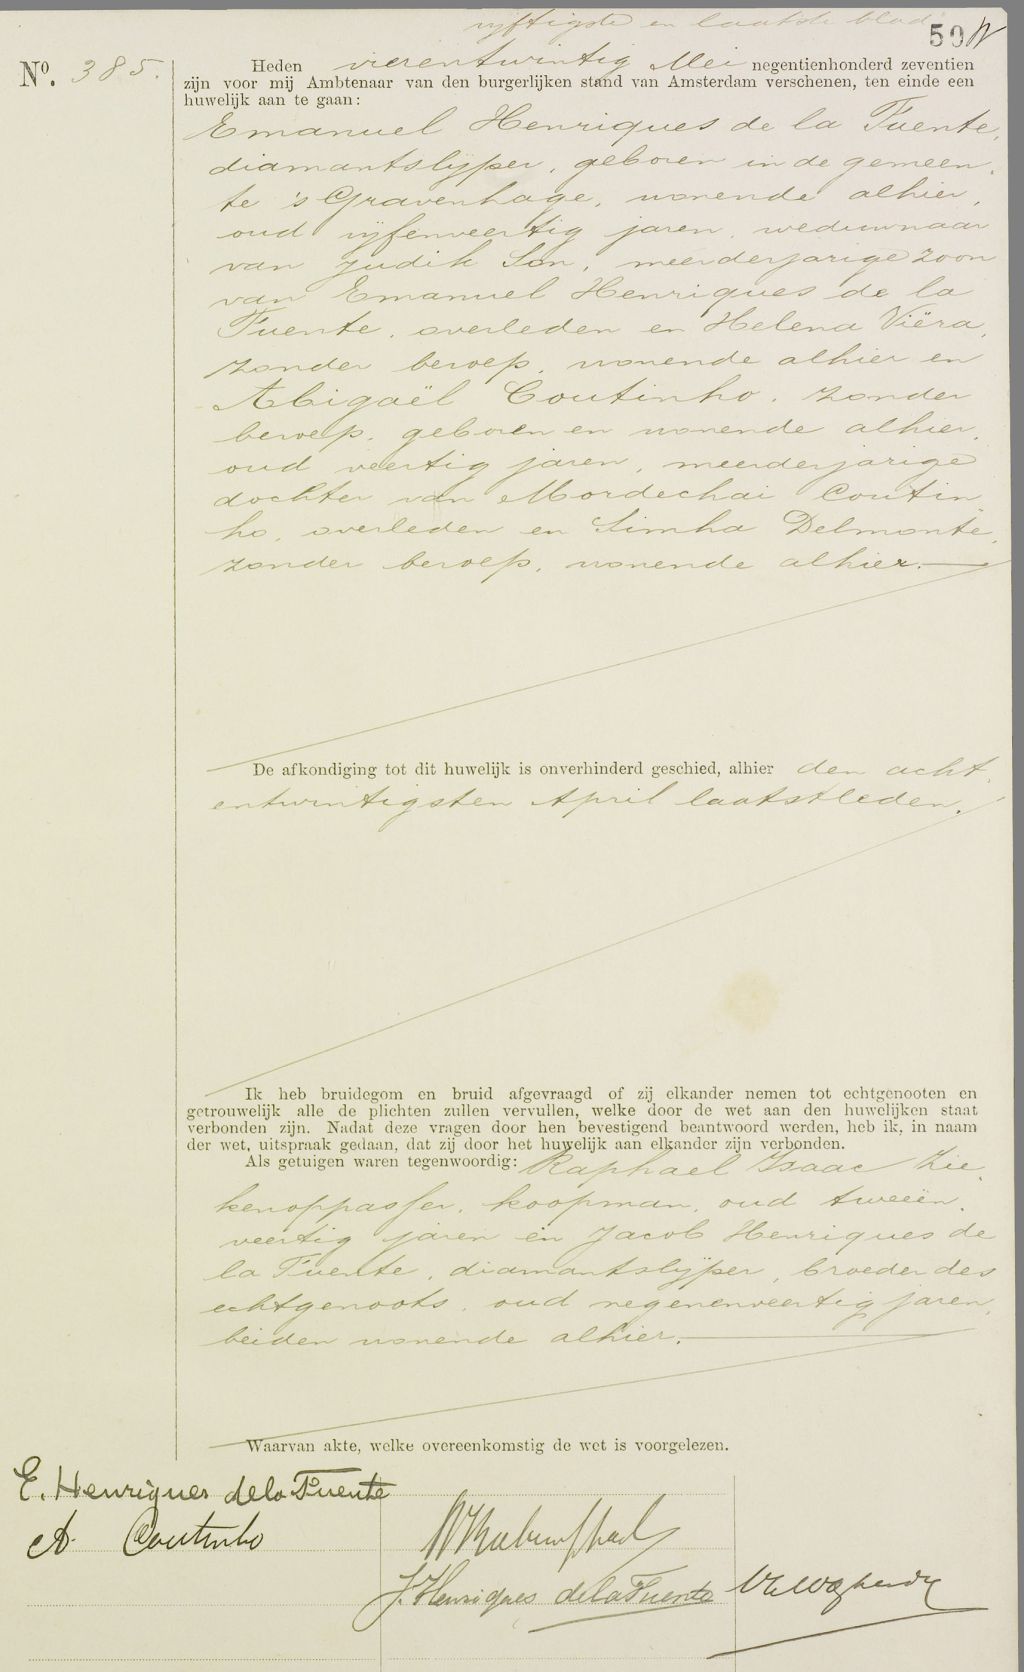 vijftigste en laatste blad
50
No. 385.
Heden vierentwintig Mei negentienhonderd zeventien
zijn voor mij Ambtenaar van den burgerlijken stand van Amsterdam verschenen, ten einde een
huwelijk aan te gaan:
Emanuel Henriques de la Fuente,
diamantslijper, geboren in de gemeen
te 's Gravenhage, wonende alhier,
oud vijfenveertig jaren, weduwnaar
van Judik Son, meerderjarige zoon
van Emanuel Henriques de la
Fuente, overleden en Helena Viëra,
zonder beroep, wonende alhier en
Abigaël Coutinho, zonder
beroep, geboren en wonende alhier,
oud veertig jaren, meerderjarige
dochter van Mordechai Coutin
ho, overleden en Simha Delmonte,
zonder beroep, wonende alhier.
De afkondiging tot dit huwelijk is onverhinderd geschied, alhier den acht
entwintigsten April laatstleden.
Ik heb bruidegom en bruid afgevraagd of zij elkander nemen tot echtgenooten en
getrouwelijk alle de plichten zullen vervullen, welke door de wet aan den huwelijken staat
verbonden zijn. Nadat deze vragen door hen bevestigend beantwoord werden, heb ik, in naam
der wet, uitspraak gedaan, dat zij door het huwelijk aan elkander zijn verbonden.
Als getuigen waren tegenwoordig: Raphael Isaac Zie
kenoppasser, koopman, oud tweeën
veertig jaren en Jacob Henriques de
la Fuente, diamantslijper, broeder des
echtgenoots, oud negenenveertig jaren,
beiden wonende alhier.
Waarvan akte, welke overeenkomstig de wet is voorgelezen.
E. Henriques de la Fuente
A. Coutinho
J. Henriques de la Fuente